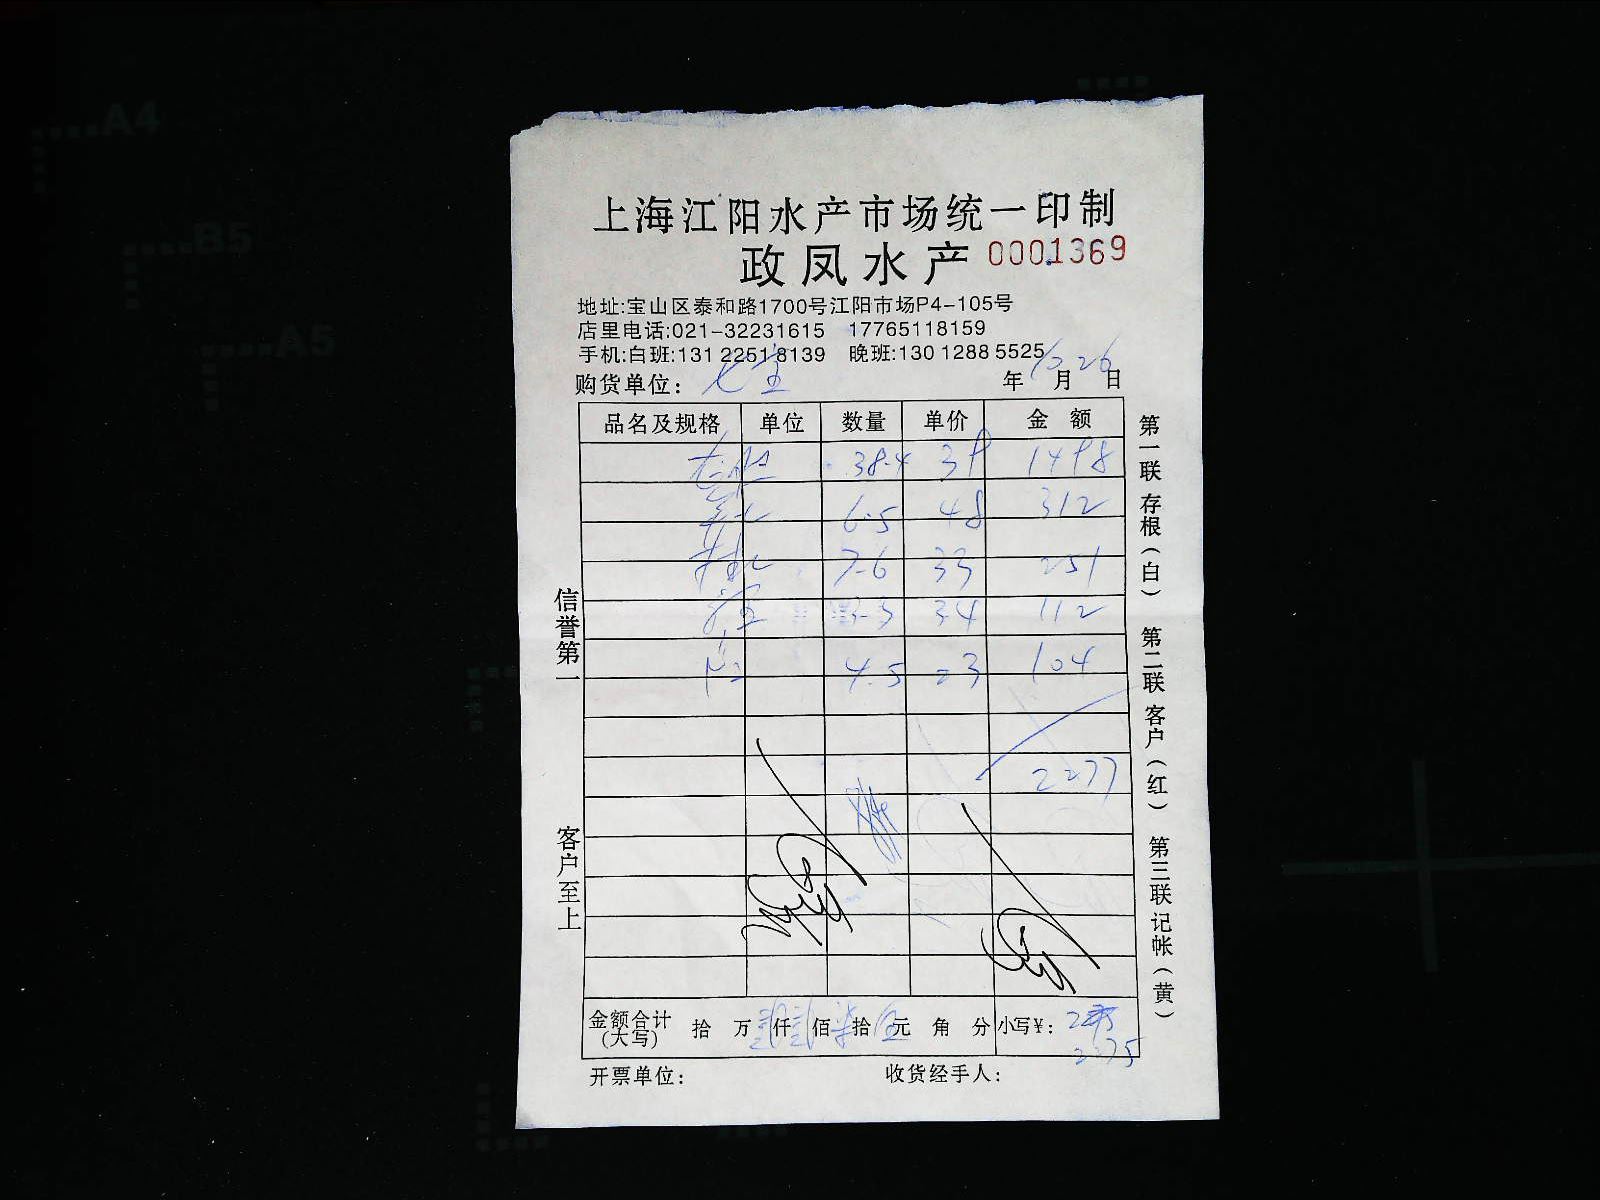 A4
B5
A5
上海江阳水产市场统一印制
政凤水产 0001369
地址:宝山区泰和路1700号江阳市场P4-105号
店里电话:021-32231615 17765118159
手机:白班:131 2251 8139 晚班:130 1288 5525
购货单位: 七宝 年 10 月 26 日
品名及规格 单位 数量 单价 金额
38.4 39 1498
6.5 48 312
7.6 33 251
3.3 34 112
4.5 23 104
2277
金额合计(大写) 拾 万 贰 仟 贰 佰 柒 拾 伍 元 角 分 小写¥:
2275
开票单位: 收货经手人:
信誉第一
客户至上
第一联存根(白) 第二联客户(红) 第三联记帐(黄)